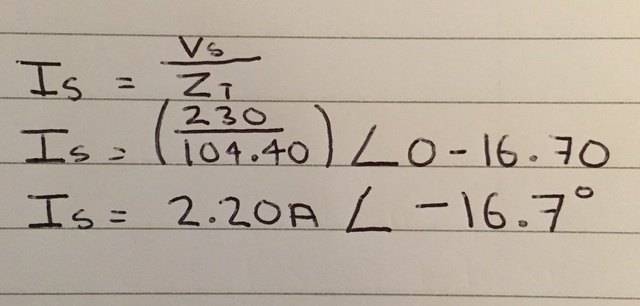 Is = Vs / ZT
Is = (230 / 104.40) ∠0-16.70
Is = 2.20A ∠ -16.7°